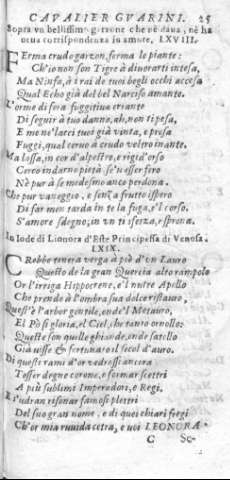 CAVALIER GVARINI. 25
Sopra vn bellissimo garzone che nè daua, nè ha
ueua corrispondenza in amore. LXVIII.
FErma crudo garzon, ferma le piante:
Ch'io non son Tigre à diuorarti intesa,
Ma Ninfa, à i rai de tuoi begli occhi accesa
Qual Echo già del bel Narciso amante.
L'orme di fera fuggitiua errante
Di seguir à tuo danno, ah, non ti pesa,
E me ne' lacci tuoi già vinta, e presa
Fuggi, qual ceruo à crudo veltro inante.
Ma lassa, in cor d'alpestro, e rigid'orso
Cerco indarno pietà, se'n esser fero
Nè pur à se medesmo anco perdona.
Che pur vaneggio, e senz'a frutto ispero
Di far men tarda in te la fuga, e'l corso.
S'amore sdegno; in vn ti sferza, e sprona.
In lode di Lionora d'Este Principessa di Venosa.
LXIX.
CRebbe tenera verga à piè d'vn Lauro
Questo de la gran Quercia alto rampollo
Or l'irriga Hippocrene, e'l nutre Apollo
Che prende à l'ombra sua dolce ristauro,
Quest'è l'arbor gentile, onde'l Metauro,
El Pò si gloria, el Ciel, che tanto ornollo:
Queste son quelle ghiande, onde satollo
Già visse & fortunato il secol d'auro.
Di questi rami d'or vedrassi ancora
Tesser degne corone, e formar scettri
A più sublimi Imperadori, e Regi,
E s'udran risonar famosi plettri
Del suo gran nome, e di quoi chiari fregi
Ch'or mia ruuida cetra, e uoi LEONORA
C Se-